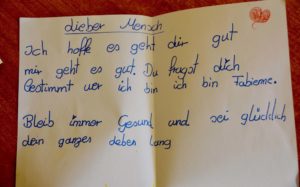 dieber Mensch
Ich hoffe es geht dir gut
mir geht es gut. Du fragst dich
bestimmt wer ich bin ich bin Fabienne.
Bleib immer Gesund und sei glücklich
dein ganzes deben lang